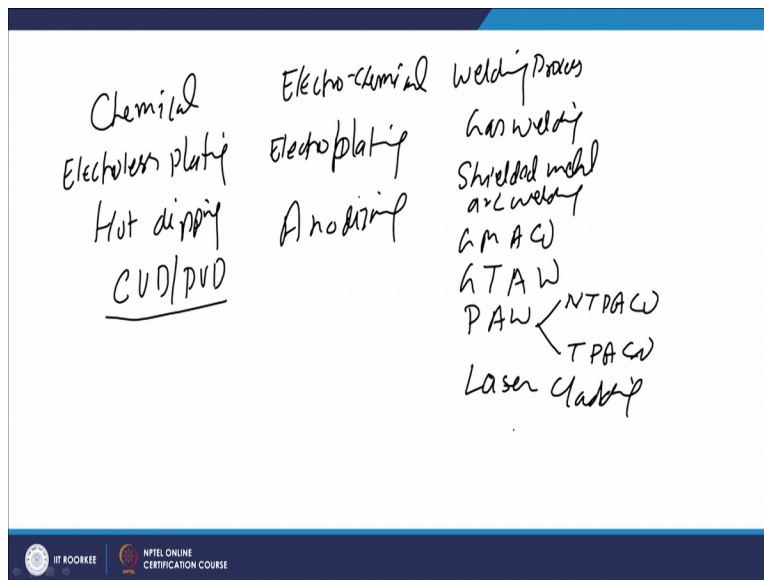 Chemical
Electroless plating
Hot dipping
CVD/PVD
Electro-chemical
Electroplating
Anodizing
Welding Process
Gas welding
Shielded metal
arc welding
GMAW
GTAW
PAW
NTPAW
TPAW
Laser Cladding
IIT ROORKEE
NPTEL ONLINE
CERTIFICATION COURSE